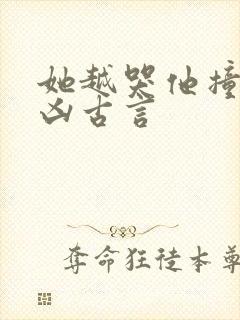 她越哭他撞
凶古言
夺命狂徒本尊